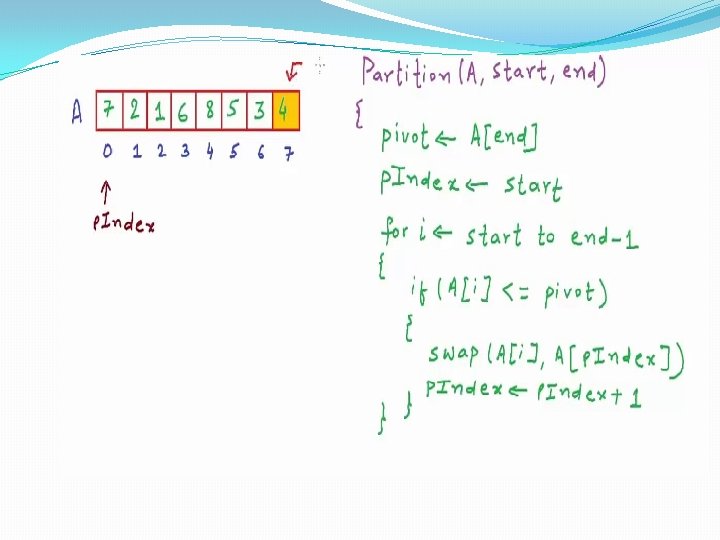 Partition(A, start, end)
A 7 2 1 6 8 5 3 4
0 1 2 3 4 5 6 7
pIndex
{
pivot ← A[end]
pIndex ← start
for i ← start to end-1
{
if (A[i] <= pivot)
{
swap (A[i], A[pIndex])
pIndex ← pIndex + 1
}
}